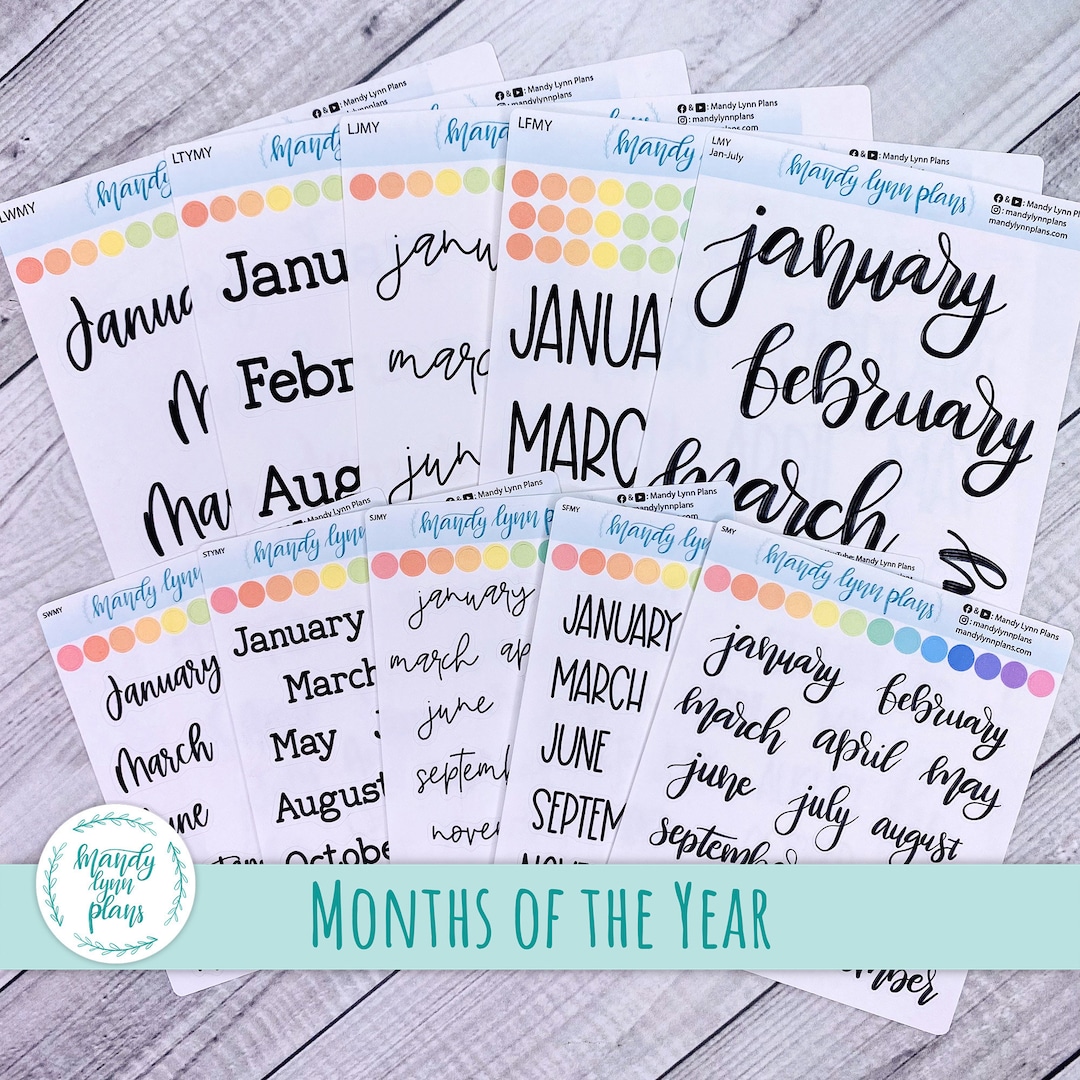 LWMY
mandy
Janua
M
Ma
LTYMY
& : Mandy Lynn Plans
: mandylynnplans
mandy l
Janu
Febr
Aug
LJMY
& : Mandy Lynn Plans
mandy l
janu
marc
jun
LFMY
& : Mandy Lynn Plans
: mandylynnplans
mandylynnplans.com
mandy l
JANUA
MARC
LMY
Jan-July
& : Mandy Lynn Plans
mandy lynn plans
& : Mandy Lynn Pl
: mandylynnplans
mandylynnplans.com
january
february
march
SWMY
mandy lynn
January
March
une
STYMY
Mandy Lynn Plans
mandy lynn
January
March
May J
August
October
SJMY
& : Mandy Lynn Plans
mandy lynn plans
january
march ap
june
septemb
novem
SFMY
& : Mandy Lynn Plans
: mandylynnplans
mandylynnplans.com
mandy lynn
JANUARY
MARCH
JUNE
SEPTEM
NOVEM
SMY
YouTube: Mandy Lynn Plans
mandy lynn plans
& : Mandy Lynn Plans
: mandylynnplans
mandylynnplans.com
january february
march april may
june july august
september
ember
mandy
lynn
plans
Months of the Year